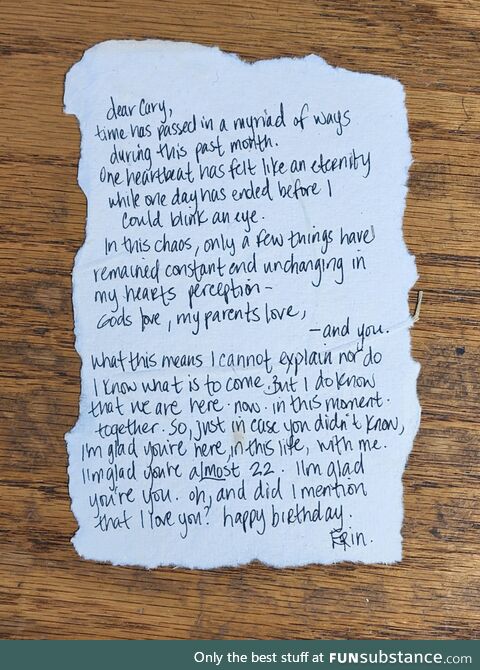 dear Cary,
time has passed in a myriad of ways
during this past month.
One heartbeat has felt like an eternity
while one day has ended before I
could blink an eye.
In this chaos, only a few things have
remained constant and unchanging in
my hearts perception -
Gods love, my parents love,
- and you.
what this means I cannot explain nor do
I know what is to come. But I do know
that we are here. now. in this moment.
together. So, just in case you didn't know,
I'm glad you're here, in this life, with me.
I'm glad you're almost 22. I'm glad
you're you. oh, and did I mention
that I love you? happy birthday.
Erin.
Only the best stuff at FUNsubstance.com